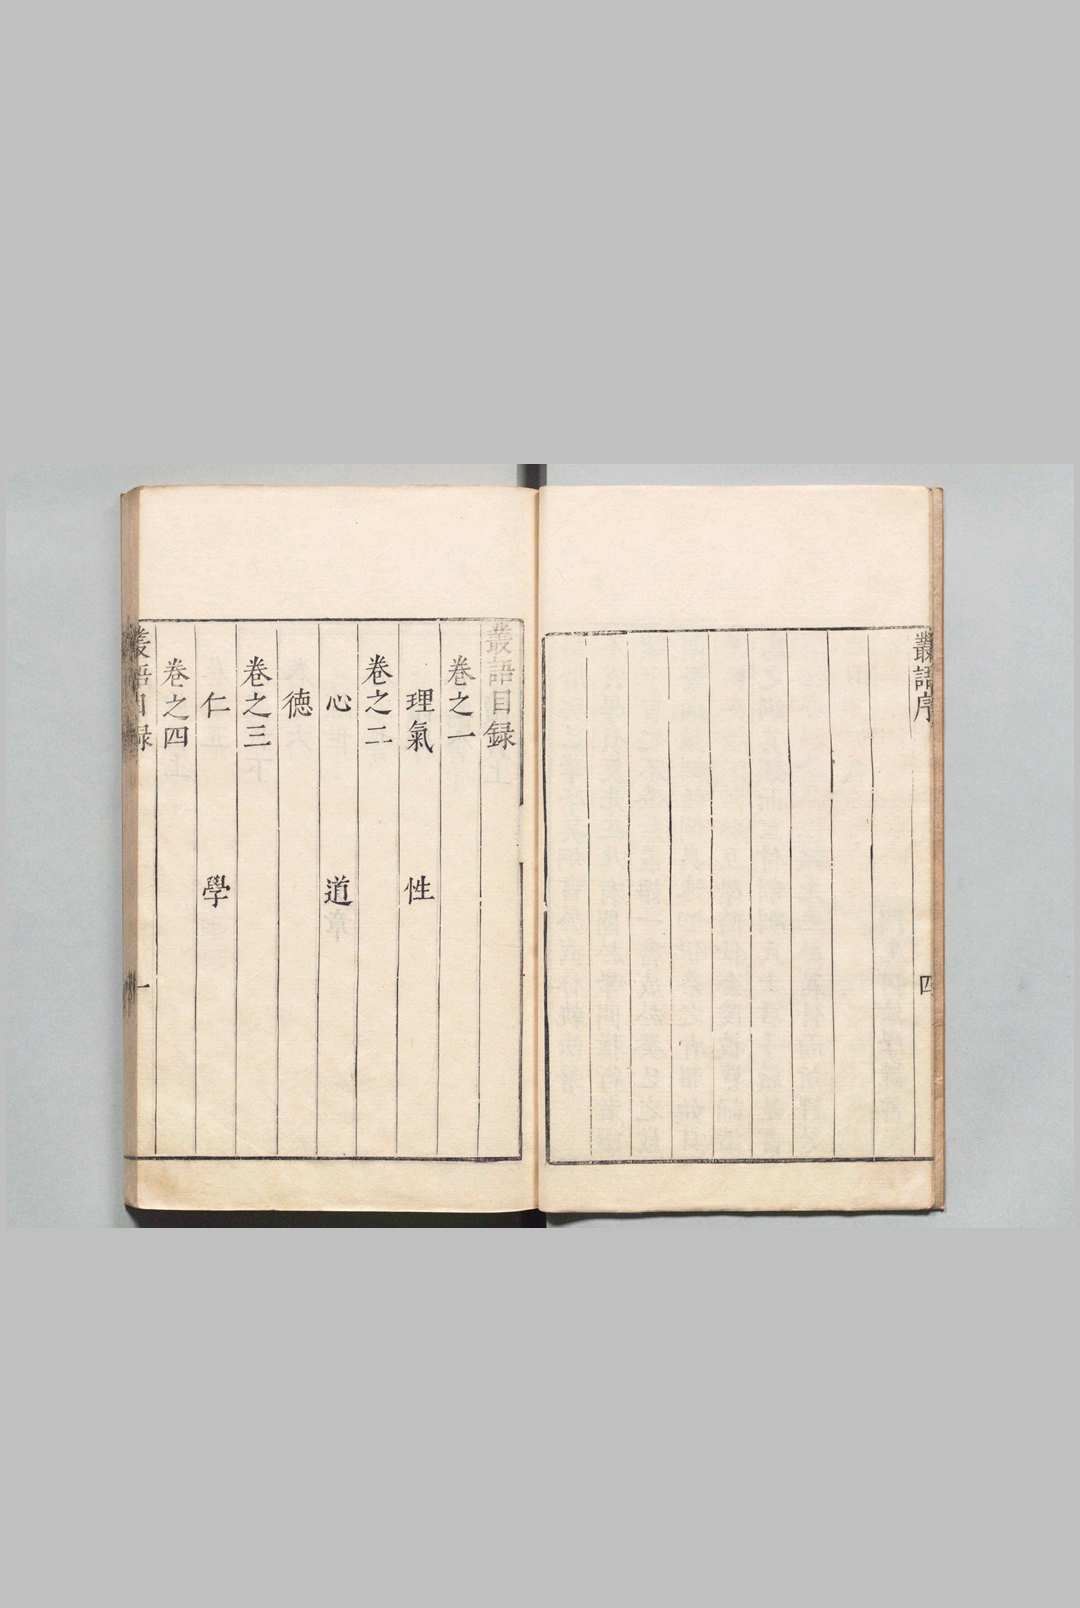 叢語序
四
叢語目録
卷之一
理氣　性
卷之二
心　道
德
卷之三
仁　學
卷之四
叢語目録
一